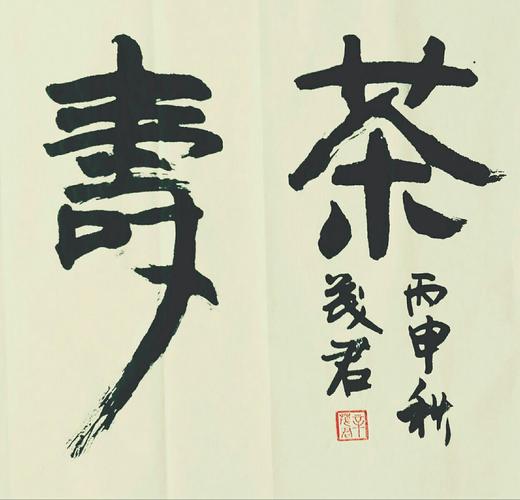 茶
壽
丙申秋
君